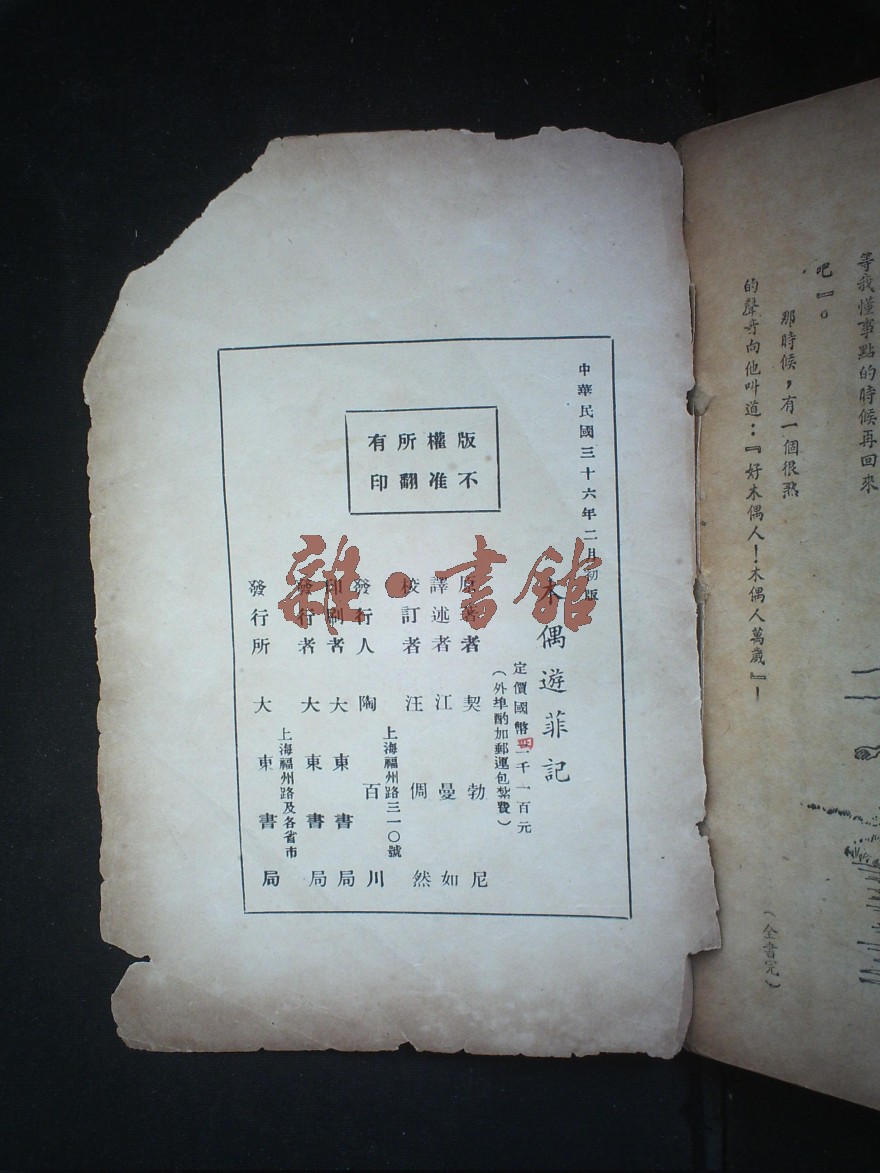 等我懂事點的時候再回來
吧』。
那時候，有一個很熟
的聲音向他叫道：『好木偶人！木偶人萬歲』！
（全書完）
中華民國三十六年二月初版
木偶遊菲記
定價國幣二千一百元
（外埠酌加郵運包紮費）
版權所有
不准翻印
原著者 契勃尼
譯述者 江曼如
校訂者 汪倜然
上海福州路三一〇號
發行人 陶百川
印刷者 大東書局
發行者 大東書局
上海福州路及各省市
發行所 大東書局
雜·書館